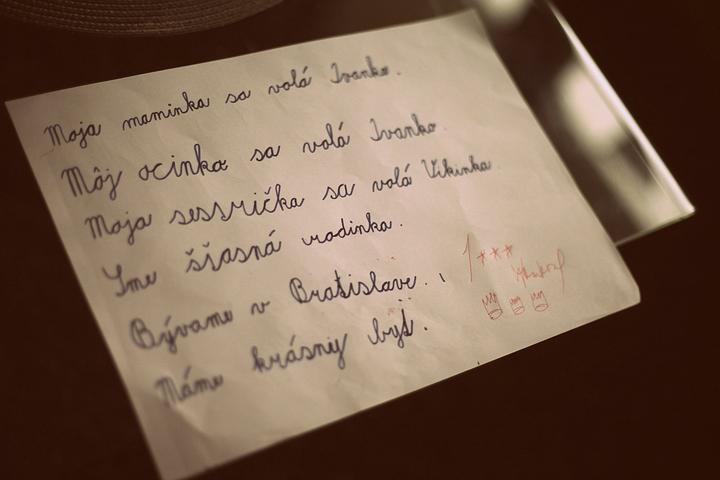 Moja maminka sa volá Ivanka.
Môj ocinko sa volá Ivanko.
Moja sestrička sa volá Vikinka.
Sme šťastná rodinka.
Bývame v Bratislave.
Máme krásny byt.
1***